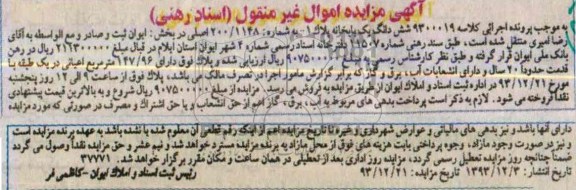 آگهی مزایده اموال غیر منقول (اسناد رهنی)
به موجب پرونده اجرائی کلاسه ۹۳۰۰۰۱۹ شش دانگ یک بابخانه پلاک ۱- به شماره: ۲۰۰/۱۱۴۸ اصلی در بخش: ایوان ثبت و صادر و مع الواسطه به آقای
رضا امیری منتقل شده است، طبق سند رهنی شماره دفترخانه اسناد رسمی شماره ۲ شهر ایوان استان ایلام در قبال مبلغ ۲۱۱۳۰۰۰۰۰ ریال در رهن
بانک ملی ایوان قرار گرفته و طبق نظر کارشناس رسمی به مبلغ ۹۰۷۵۰۰۰۰۰ ریال ارزیابی شده و پلاک فوق دارای ۱۴۷/۹۶ مترمربع اعیانی در یک طبقه با
قدمت حدودا ۲۰ سال و دارای انشعابات آب، برق و گاز که برابر گزارش مامور اجرا در تصرف مالک می باشد، پلاک فوق از ساعت ۹ الی ۱۲ روز پنجشنبه
مورخ ۹۳/۱۲/۲۱ در اداره ثبت اسناد و املاک ایوان از طریق مزایده به فروش می رسد. مزایده از مبلغ ۹۰۷۵۰۰۰۰۰ ریال شروع و به بالاترین قیمت پیشنهادی
نقدا فروخته می شود. لازم به ذکر است پرداخت بدهی های مربوط به آب، برق، گاز اعم از حق انشعاب و یا حق اشتراک و مصرف در صورتی که مورد مزایده
دارای آنها باشد و نیز بدهی های مالیاتی و عوارض شهرداری و غیره تا تاریخ مزایده اعم از اینکه رقم قطعی آن معلوم شده یا نشده باشد به عهده برنده مزایده است
و نیز در صورت وجود مازاد، وجوه پرداختی بابت هزینه های فوق از محل مازاد به برنده مزایده مسترد خواهد شد و نیم عشر و حق مزایده نقدا وصول می گردد
ضمنا چنانچه روز مزایده تعطیل رسمی گردد، مزایده روز اداری بعد از تعطیلی در همان ساعت و مکان مقرر برگزار خواهد شد. ۳۷۷۷۱
تاریخ انتشار: ۱۳۹۳/۱۲/۳ تاریخ مزایده: ۹۳/۱۲/۲۱ رئیس ثبت اسناد و املاک ایوان-کاظمی فر